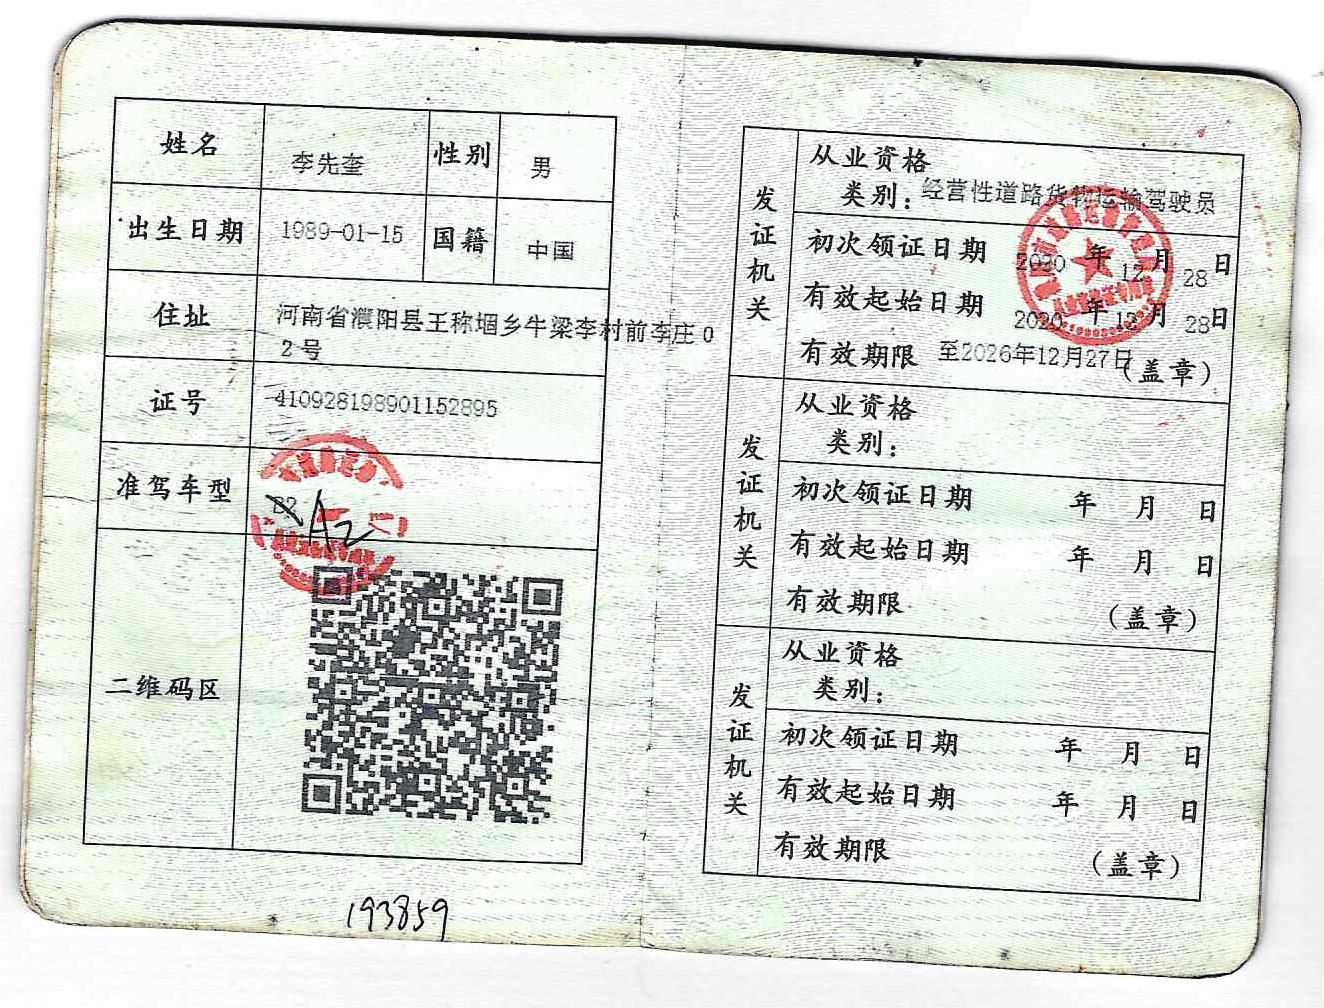 姓名 李先奎 性别 男
出生日期 1989-01-15 国籍 中国
住址 河南省濮阳县王称堌乡牛梁李村前李庄0
2号
证号 410928198901152895
准驾车型 B2 A2
二维码区
193859
发证机关
从业资格
类别：经营性道路货物运输驾驶员
初次领证日期 2020 年 12 月 28 日
有效起始日期 2020 年 12 月 28 日
有效期限 至2026年12月27日 (盖章)
发证机关
从业资格
类别：
初次领证日期 年 月 日
有效起始日期 年 月 日
有效期限 (盖章)
发证机关
从业资格
类别：
初次领证日期 年 月 日
有效起始日期 年 月 日
有效期限 (盖章)